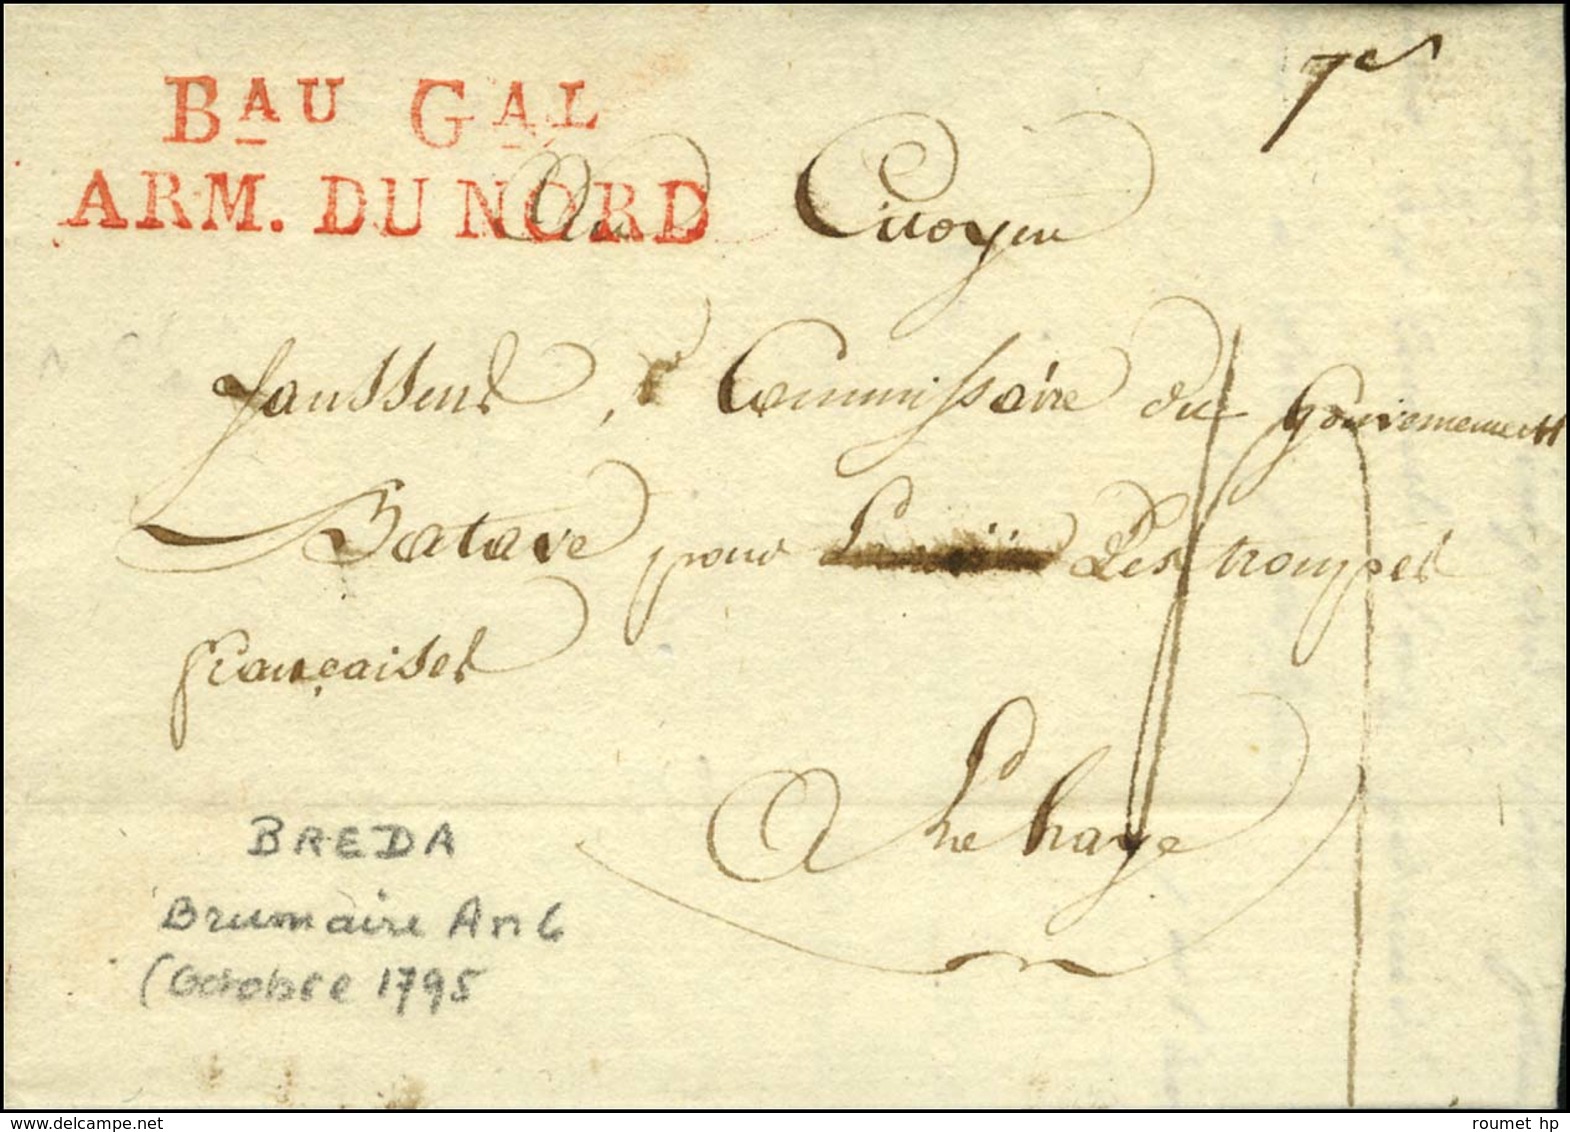 7es
BAU GAL
ARM. DU NORD
Au Citoyen
Janssens, Commissaire du gouvernement
Batave pour Les troupes
françaises
A La haye
BREDA
Brumaire An 6
(Octobre 1795
www.delcampe.net
roumet hp